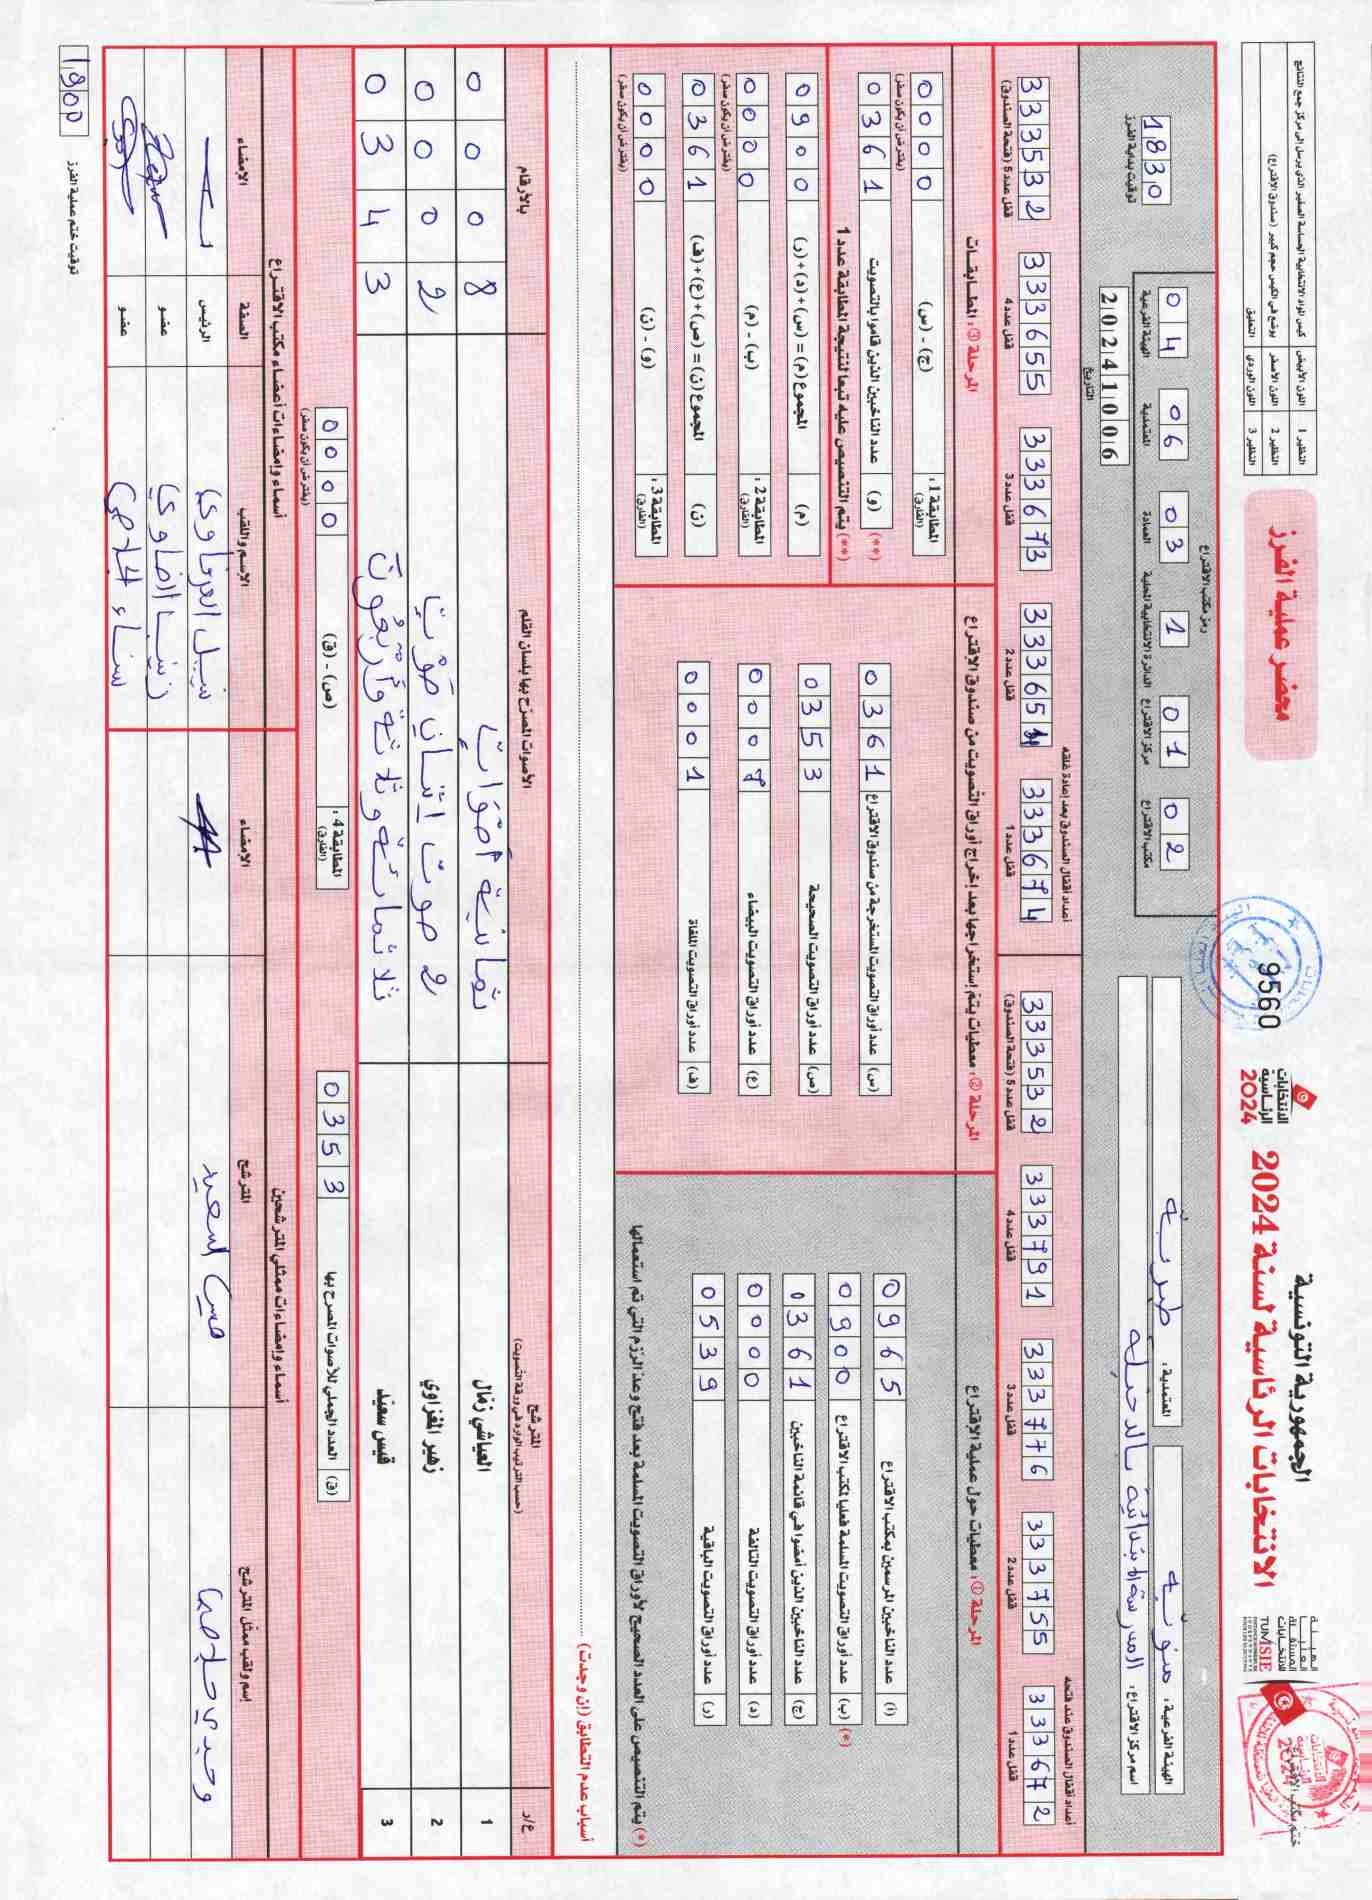 الجمهورية التونسية
الانتخابات الرئاسية لسنة 2024
الانتخابات
الرئاسية
2024
9560
محضر عملية الفرز
النظير 1 اللون الأبيض كيس المواد الانتخابية الحساسة الصغير الذي يرسل إلى مركز جمع النتائج
النظير 2 اللون الأصفر يوضع في الكيس حجم كبير (صندوق الاقتراع)
النظير 3 اللون الوردي التعليق
ختم مكتب الاقتراع
الهيئة الفرعية: منوبة
المعتمدية: طبربة
اسم مركز الاقتراع: المدرسة الابتدائية بالدخيلة
رمز مكتب الاقتراع
04 06 03 1 01 02
الهيئة الفرعية المعتمدية العمادة الدائرة الانتخابية المحلية مركز الاقتراع مكتب الاقتراع
20241006
التاريخ
1830
توقيت بداية الفرز
أعداد أقفال الصندوق عند فتحه
333672 قفل عدد 1
333755 قفل عدد 2
333776 قفل عدد 3
333791 قفل عدد 4
333532 قفل عدد 5 (فتحة الصندوق)
أعداد أقفال الصندوق بعد إعادة غلقه
333674 قفل عدد 1
قفل عدد 2
333673 قفل عدد 3
333655 قفل عدد 4
333532 قفل عدد 5 (فتحة الصندوق)
المرحلة ①: معطيات حول عملية الاقتراع
(أ) عدد الناخبين المرسمين بمكتب الاقتراع 0965
(ب) عدد أوراق التصويت المسلمة فعليا لمكتب الاقتراع 0900 (*)
(ج) عدد الناخبين الذين أمضوا في قائمة الناخبين 0361
(د) عدد أوراق التصويت التالفة 0000
(ر) عدد أوراق التصويت الباقية 0539
(*) يتم التنصيص على العدد الصحيح لأوراق التصويت المسلمة بعد فتح وعد الرزم التي تم استعمالها
المرحلة ②: معطيات يتم إستخراجها بعد إخراج أوراق التصويت من صندوق الاقتراع
(س) عدد أوراق التصويت المستخرجة من صندوق الاقتراع 0361
(ص) عدد أوراق التصويت الصحيحة 0353
(ع) عدد أوراق التصويت البيضاء 0007
(ف) عدد أوراق التصويت الملغاة 0001
المرحلة ③: المطابقات
المطابقة 1: (الفارق) (ج) - (س) 0000 (يفترض أن يكون صفر)
(**) (و) عدد الناخبين الذين قاموا بالتصويت 0361
(**) يتم التنصيص عليه تبعا لنتيجة المطابقة عدد 1
(م) المجموع (م) = (س)+(د)+(ر) 0900
المطابقة 2: (الفارق) (ب) - (م) 0000 (يفترض أن يكون صفر)
(ن) المجموع (ن) = (ص)+(ع)+(ف) 0361
المطابقة 3: (الفارق) (و) - (ن) 0000 (يفترض أن يكون صفر)
أسباب عدم التطابق (إن وجدت)
ع/ر المترشح (حسب الترتيب الوارد في ورقة التصويت) الأصوات المصرّح بها بلسان القلم بالأرقام
1 العياشي زمّال ثمانية أصوات 0008
2 زهير المغزاوي 2 صوت إثنان صوت 0002
3 قيس سعيّد ثلاثمائة وثلاثة وأربعون 0343
(ق) العدد الجملي للأصوات المصرح بها 0353
المطابقة 4: (الفارق) (ص) - (ق) 0000 (يفترض أن يكون صفر)
أسماء وإمضاءات ممثلي المترشحين
إسم ولقب ممثل المترشح المترشح الإمضاء
قيس سعيد
أسماء وإمضاءات أعضاء مكتب الاقتراع
الإسم واللقب الصفة الإمضاء
نبيل العرفاوي الرئيس
عضو
سناء عضو
توقيت ختم عملية الفرز